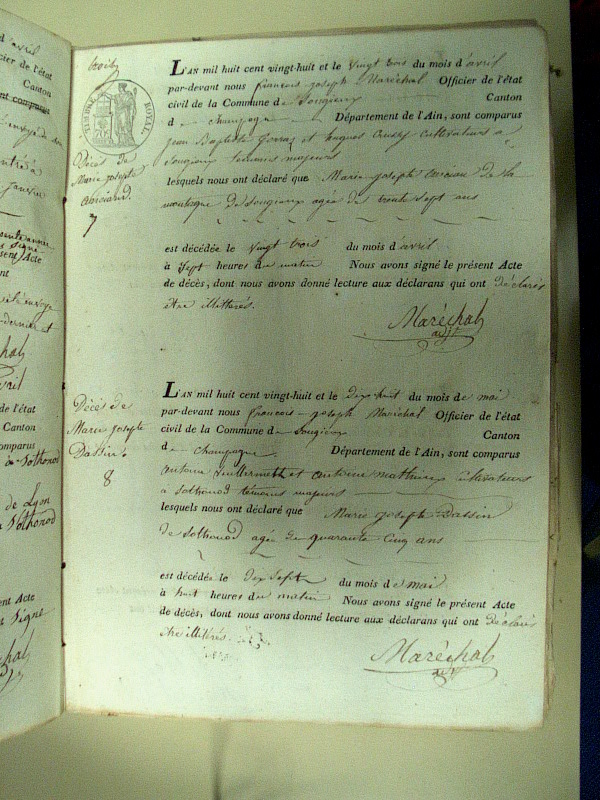 avril
cier de l'état
Canton
sont comparus
janvier
sent Acte
de l'état
Canton
omparus
à Sothonod
de Lyon
à Sothonod
ent Acte
Signé
TIMBRE ROYAL.
Décès de
Marie josephe
7
L'AN mil huit cent vingt-huit et le vingt trois du mois d'avril
par-devant nous françois joseph Maréchal Officier de l'état
civil de la Commune de Songieux Canton
de champagne Département de l'Ain, sont comparus
jean Baptiste et cultivateurs à
Songieux temoins majeurs
lesquels nous ont déclaré que Marie josephe de la
montagne de Songieux agée de trente sept ans
est décédée le vingt trois du mois d'avril
à sept heures du matin Nous avons signé le présent Acte
de décès, dont nous avons donné lecture aux déclarans qui ont déclarés
être illitérés.
Maréchal
Décès de
Marie josephe
Dassin
8
L'AN mil huit cent vingt-huit et le dix huit du mois de mai
par-devant nous françois joseph Maréchal Officier de l'état
civil de la Commune de Songieux Canton
de champagne Département de l'Ain, sont comparus
antoine et antoine mathieu cultivateurs
à Sothonod témoins majeurs
lesquels nous ont déclaré que Marie josephe Dassin
de Sothonod agée de quarante cinq ans
est décédée le dix sept du mois de mai
à huit heures du matin Nous avons signé le présent Acte
de décès, dont nous avons donné lecture aux déclarans qui ont déclarés
être illitérés.
Maréchal